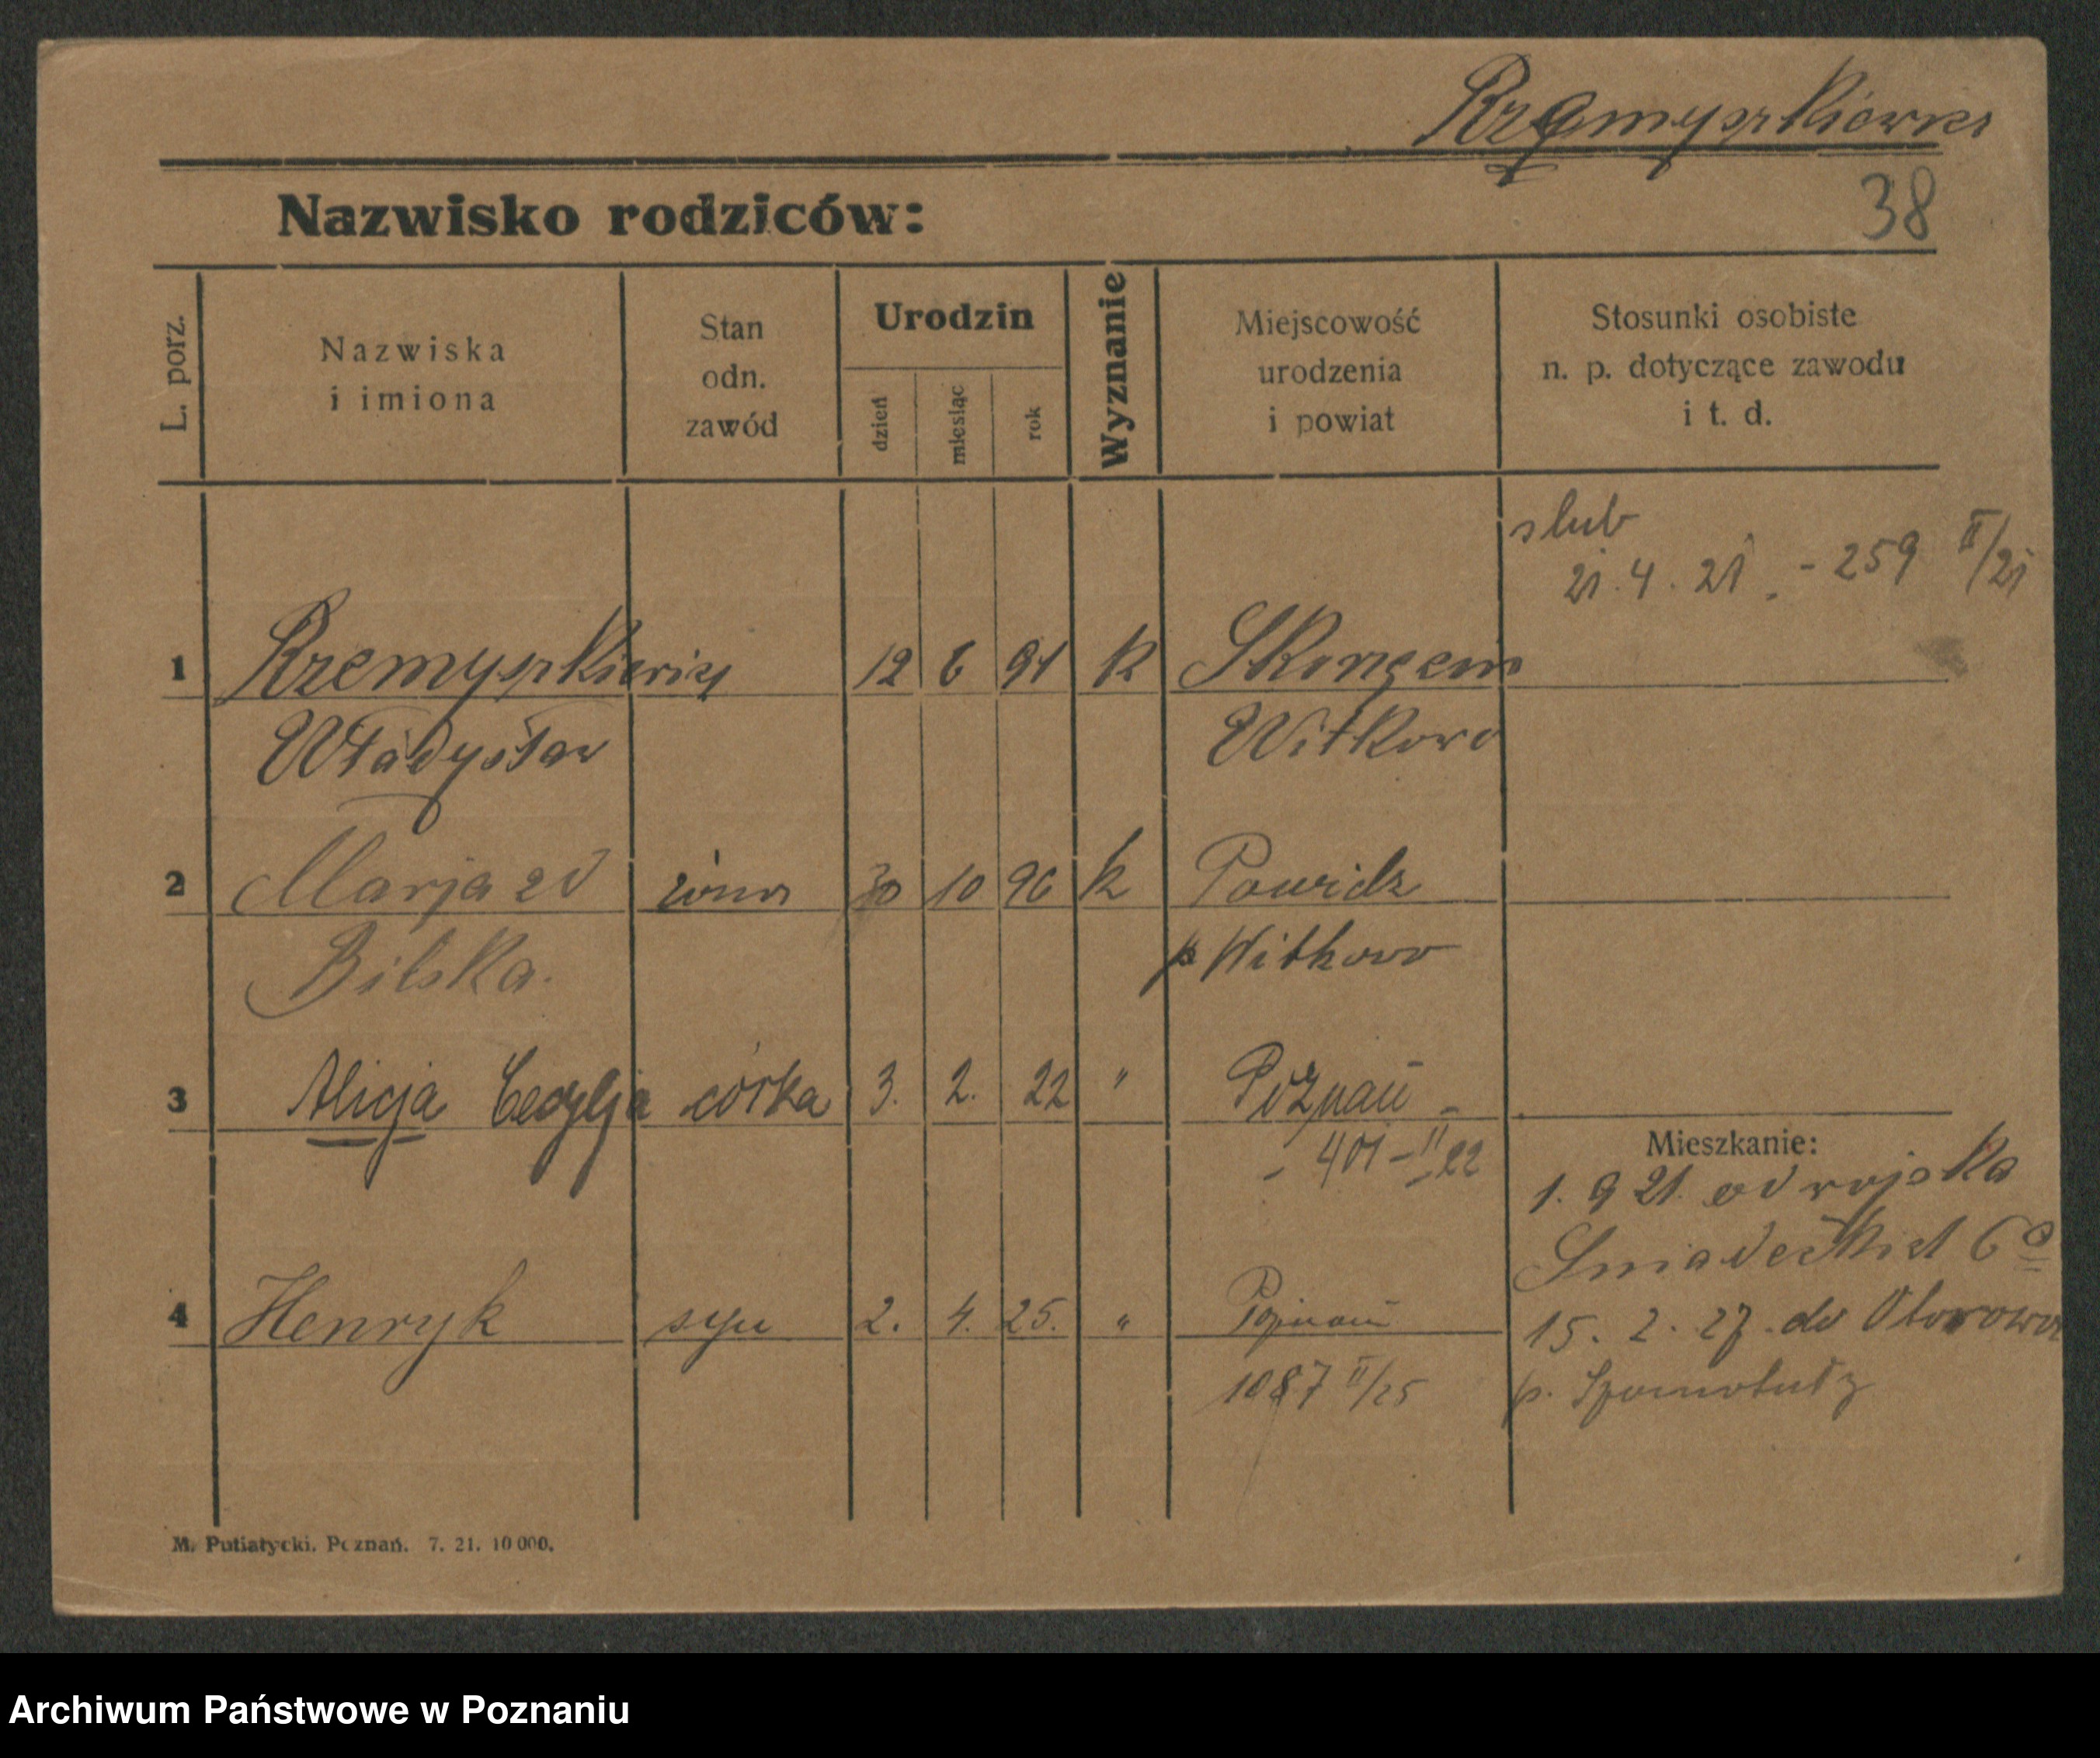 Krzemyszkiewicz
38
Nazwisko rodziców:
L. porz.
Nazwiska
i imiona
Stan
odn.
zawód
Urodzin
dzień
miesiąc
rok
Wyznanie
Miejscowość
urodzenia
i powiat
Stosunki osobiste
n. p. dotyczące zawodu
i t. d.
slub
21. 4. 21. - 259 II/21
1 Krzemyszkiewicz 12 6 91 k
Władysław Witkowo
2 Marja zd żona 30 10 96 k Powidz
Bilska. p Witkowo
3 Alicja Cecylja córka 3. 2. 22 " Poznań -
- 401 - II 22
Mieszkanie:
1. 9 21. od wojska
Sniadeckich 6
4 Henryk syn 2. 4. 25. " Poznań
15. 2. 27. do Otorowa
1087 II/25
p. Szamotuły
M. Putiatycki. Poznań. 7. 21. 10 000.
Archiwum Państwowe w Poznaniu